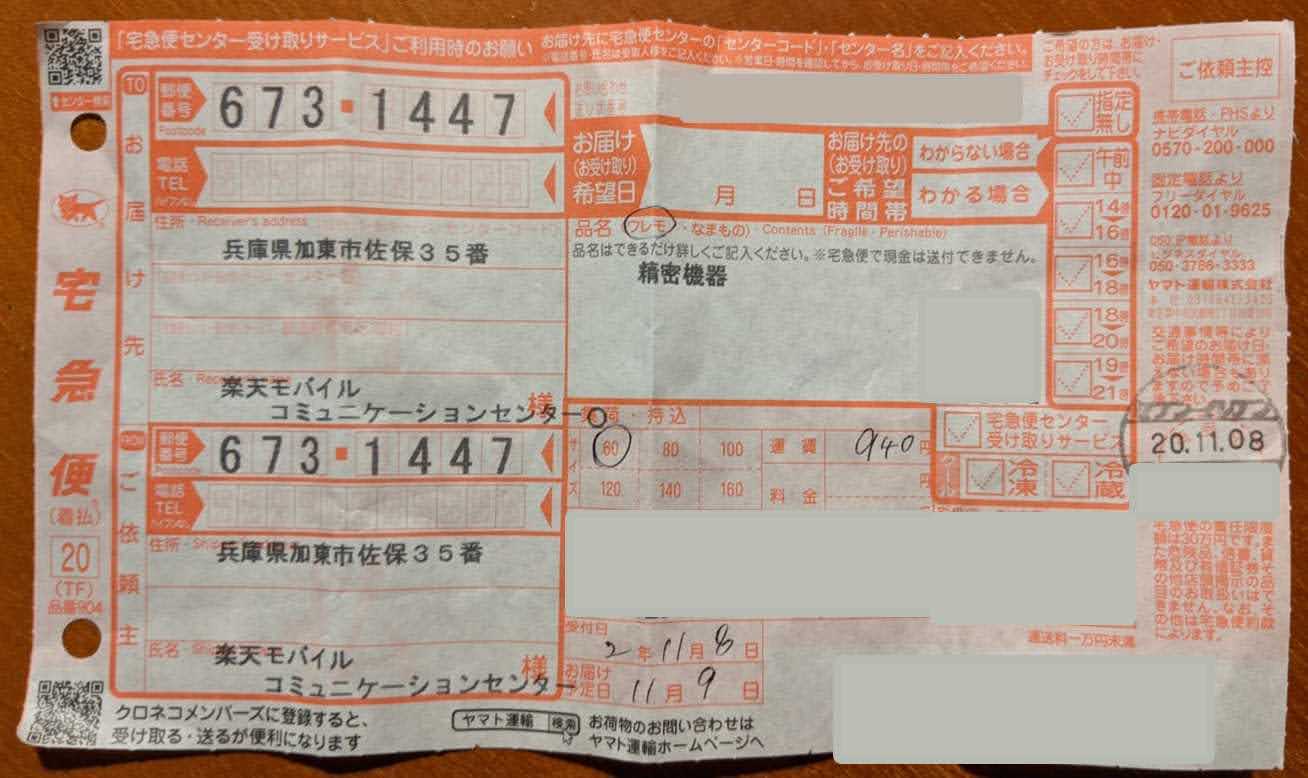 「宅急便センター受け取りサービス」ご利用時のお願い
お届け先に宅急便センターの「センターコード」・「センター名」をご記入ください。
ご依頼主控
TO
お届け先
郵便番号
Postcode
673-1447
電話
TEL
住所・Receiver's address
兵庫県加東市佐保35番
氏名
楽天モバイル
コミュニケーションセンター
様
お届け
(お受け取り)
希望日
月 日
お届け先の
(お受け取り)
ご希望
時間帯
わからない場合
わかる場合
指定無し
午前中
14時
16時
16時
18時
18時
20時
19時
21時
品名
ワレモノ
・なまもの)・Contents (Fragile・Perishable)
品名はできるだけ詳しくご記入ください。※宅急便で現金は送付できません。
精密機器
携帯電話・PHSより
ナビダイヤル
0570-200-000
固定電話より
フリーダイヤル
0120-01-9625
050-3786-3333
ヤマト運輸株式会社
宅急便
(着払)
20
(TF)
品番904
ご依頼主
郵便番号
673-1447
電話
TEL
住所
兵庫県加東市佐保35番
氏名
楽天モバイル
コミュニケーションセンター
様
集荷・持込
サイズ
60 80 100
120 140 160
運賃 940円
料金 円
宅急便センター
受け取りサービス
クール
冷凍
冷蔵
20.11.08
受付日
2年11月8日
お届け
予定日
11月9日
運送料一万円未満
クロネコメンバーズに登録すると、
受け取る・送るが便利になります
ヤマト運輸 検索
お荷物のお問い合わせは
ヤマト運輸ホームページへ